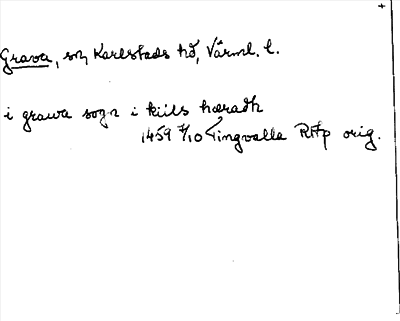 Grava, sn Karlstads hd, Värml. l.
i grawa sogn i kiils hæradh
1459 7/10 Tingvalla RAp orig.